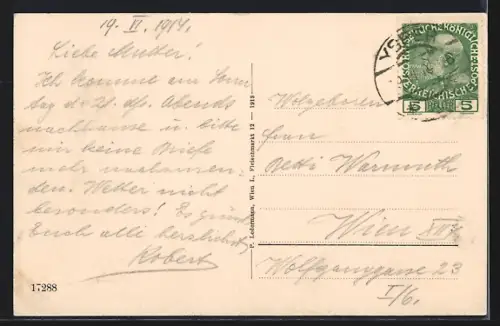 19. VI. 1914.
Liebe Mutter!
Ich komme am Sonn
tag d. 21. dfs. Abends
nachhause u. bitte
mir keine Briefe
mehr nachzusen-
den. Wetter nicht
besonders! Es grüsst
Euch alle herzlichst
Robert
17288
P. Ledermann, Wien I., Fleischmarkt 12 — 1913
5 5
Wolgeboren
Frau
Betti Warmuth
Wien XII/2
Wolfganggasse 23
I/6.